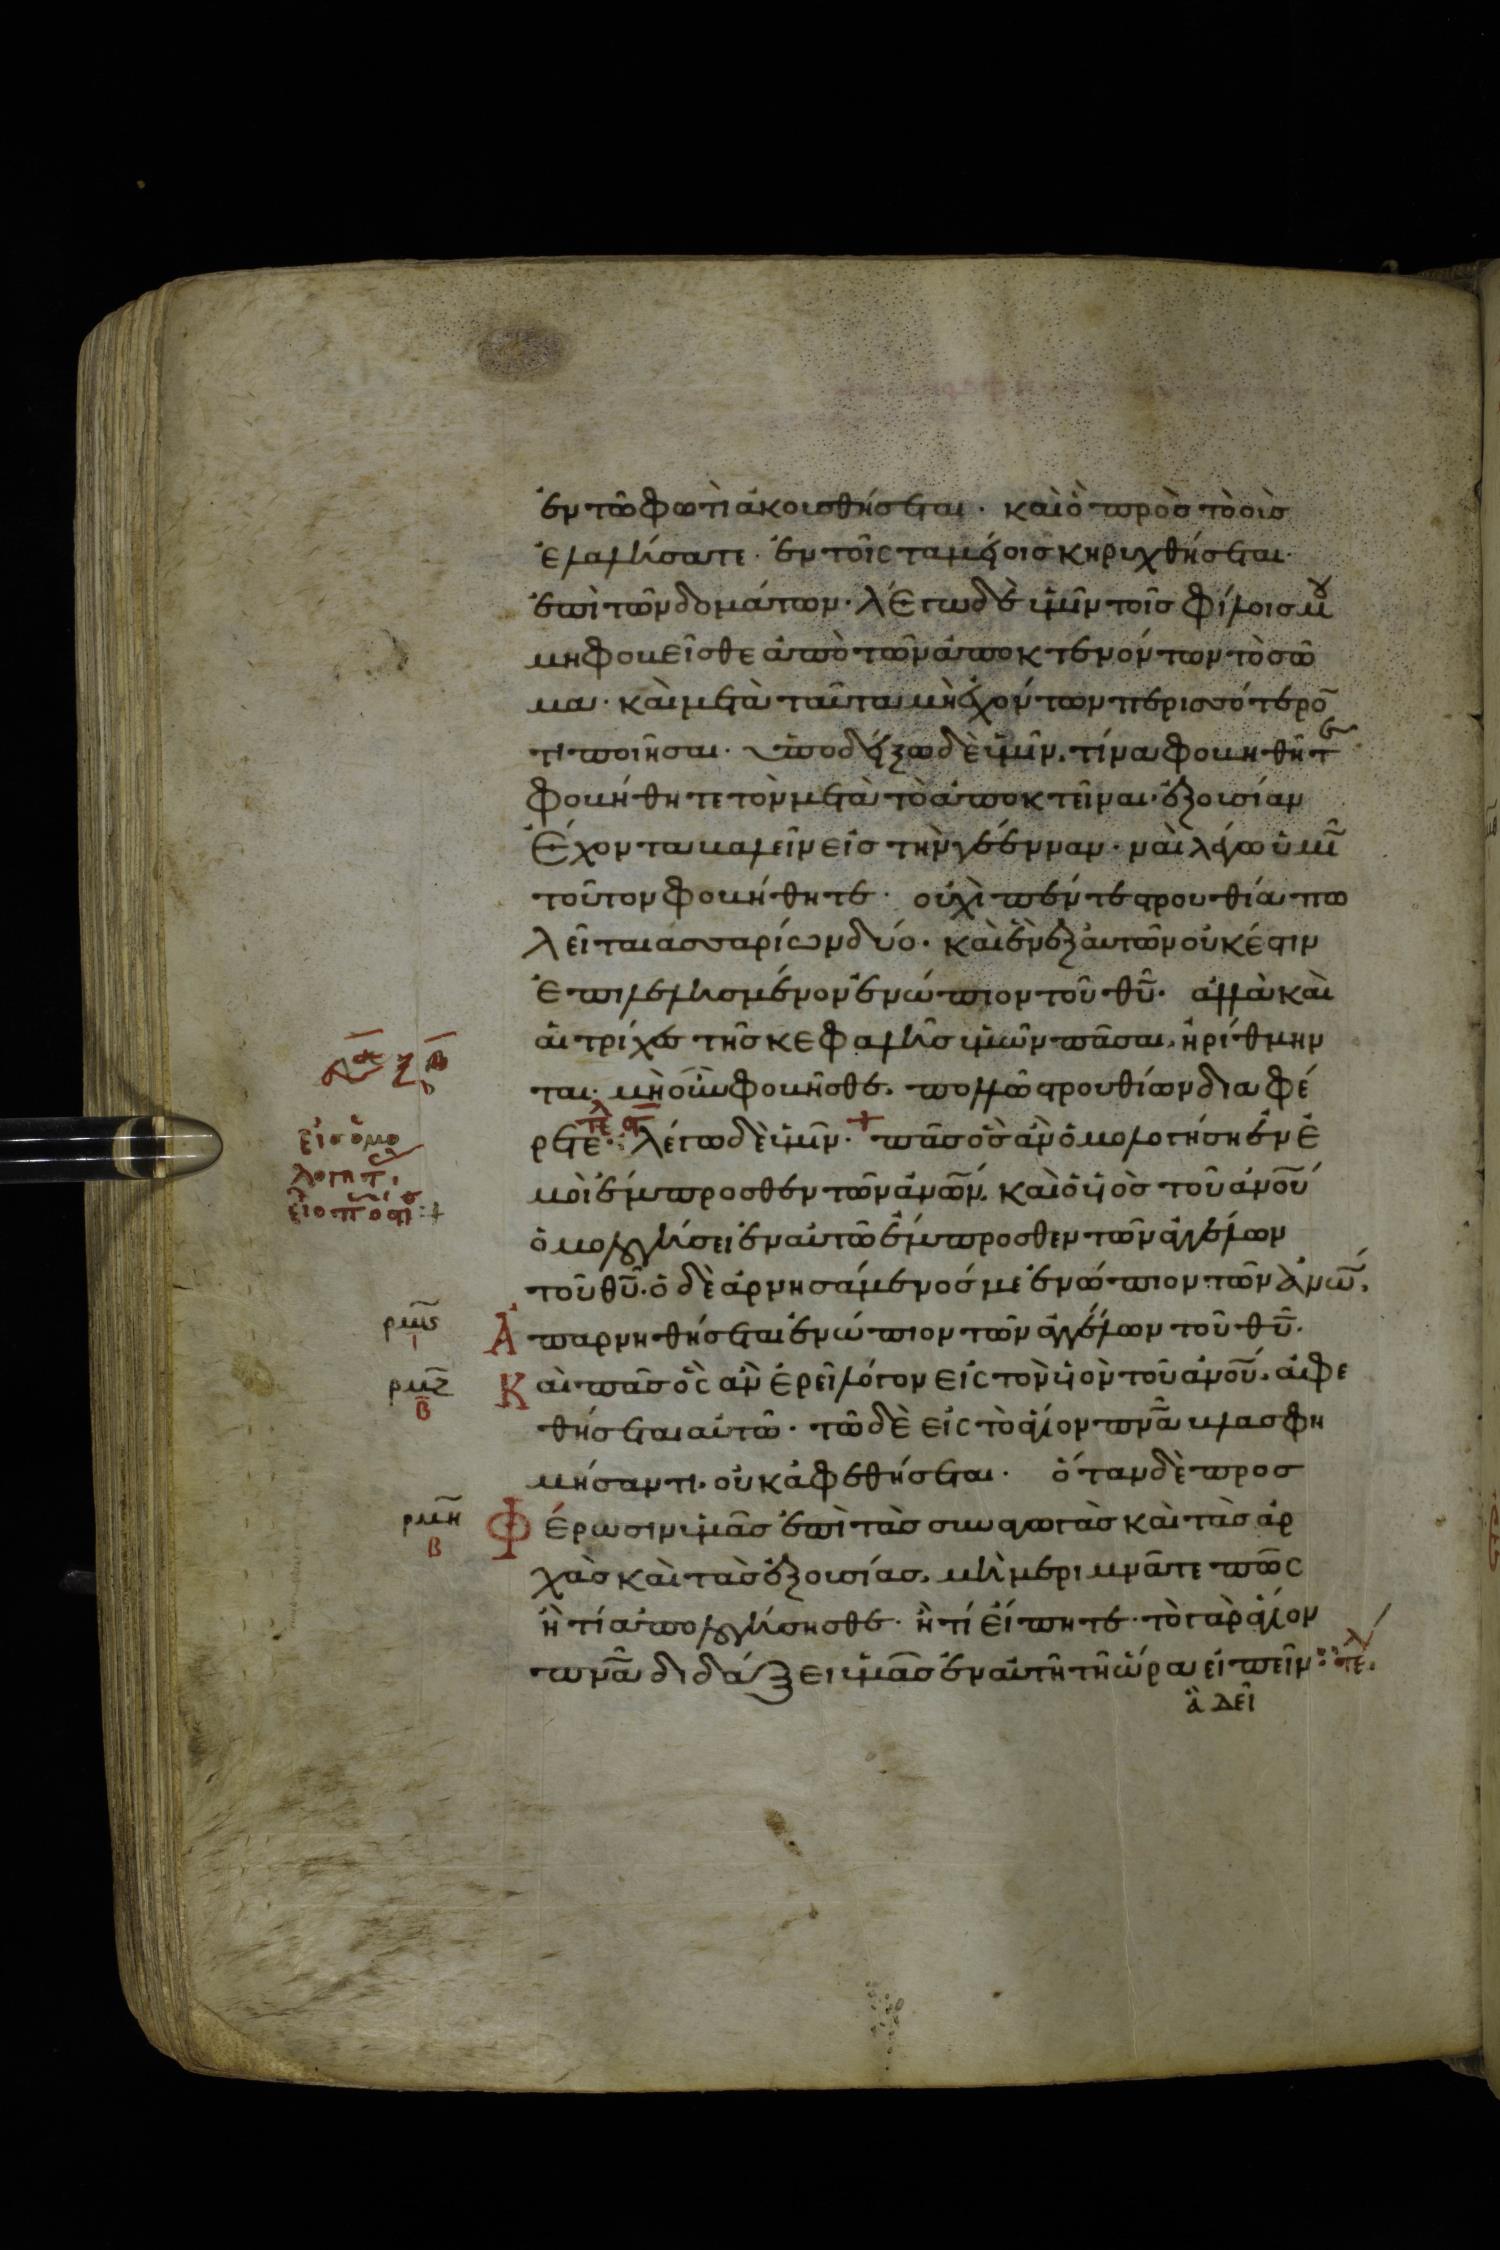 ἐν τῶ φωτὶ ἀκουσθήσεται· καὶ ὃ πρὸς τὸ οὖς
ἐλαλήσατε· ἐν τοῖς ταμείοις κηρυχθήσεται·
ἐπὶ τῶν δομάτων· λέγω δὲ ὑμῖν τοῖς φίλοις μου
μὴ φοβεῖσθε ἀπὸ τῶν ἀποκτενόντων τὸ σῶ
μα· καὶ μετὰ ταῦτα μὴ ἐχόντων περισσότερο̄
τι ποιῆσαι· ὑποδείξω δὲ ὑμῖν, τίνα φοβηθῆτε
φοβήθητε τὸν μετὰ τὸ ἀποκτεῖναι· ἐξουσίαν
ἔχοντα βαλεῖν εἰς τὴν γέενναν· ναὶ λέγω ὑμῖ̄
τοῦτον φοβήθητε· οὐχὶ πέντε στρουθία πω
λεῖται ἀσσαρίων δύο· καὶ ἓν ἐξ αὐτῶν οὐκ ἔστιν
ἐπιλελησμένον ἐνώπιον τοῦ θ̅υ̅· ἀλλὰ καὶ
αἱ τρίχες τῆς κεφαλῆς ὑμῶν πᾶσαι, ἠρίθμην
ται· μὴ οὖν φοβῆσθε, πολλῶ στρουθίων διαφέ
ρετε· λέγω δὲ ὑμῖν· + πᾶς ὃς ἂν ὁμολογήση ἐν ἐ
μοὶ ἔμπροσθεν τῶν ἀν̅ω̅ν̅, καὶ ὁ υἱὸς τοῦ ἀν̅ο̅υ̅
ὁμολογήσει ἐν αὐτῶ ἔμπροσθεν τῶν ἀγγέλων
τοῦ θ̅υ̅· ὁ δὲ ἀρνησάμενός με ἐνώπιον τῶν ἀν̅ω̅ν̅,
ρμς ι Ἀπαρνηθήσεται ἐνώπιον τῶν ἀγγέλων τοῦ θ̅υ̅·
ρμζ β Καὶ πᾶς ὃς ἂν ἐρεῖ λόγον εἰς τὸν υἱὸν τοῦ ἀν̅ο̅υ̅, ἀφε
θήσεται αὐτῶ· τῶ δὲ εἰς τὸ ἅγιον πν̅α̅ βλασφη
μήσαντι, οὐκ ἀφεθήσεται· ὅταν δὲ προσ
ρμη β Φέρωσιν ὑμᾶς ἐπὶ τὰς συναγωγὰς καὶ τὰς ἀρ
χὰς καὶ τὰς ἐξουσίας, μὴ μεριμνᾶτε πῶς
ἢ τί ἀπολογήσησθε· ἢ τί εἴπητε· τὸ γὰρ ἅγιον
πν̅α̅ διδάξει ὑμᾶς ἐν αὐτῆ τῆ ὥρα εἰπεῖν
ἃ δεῖ